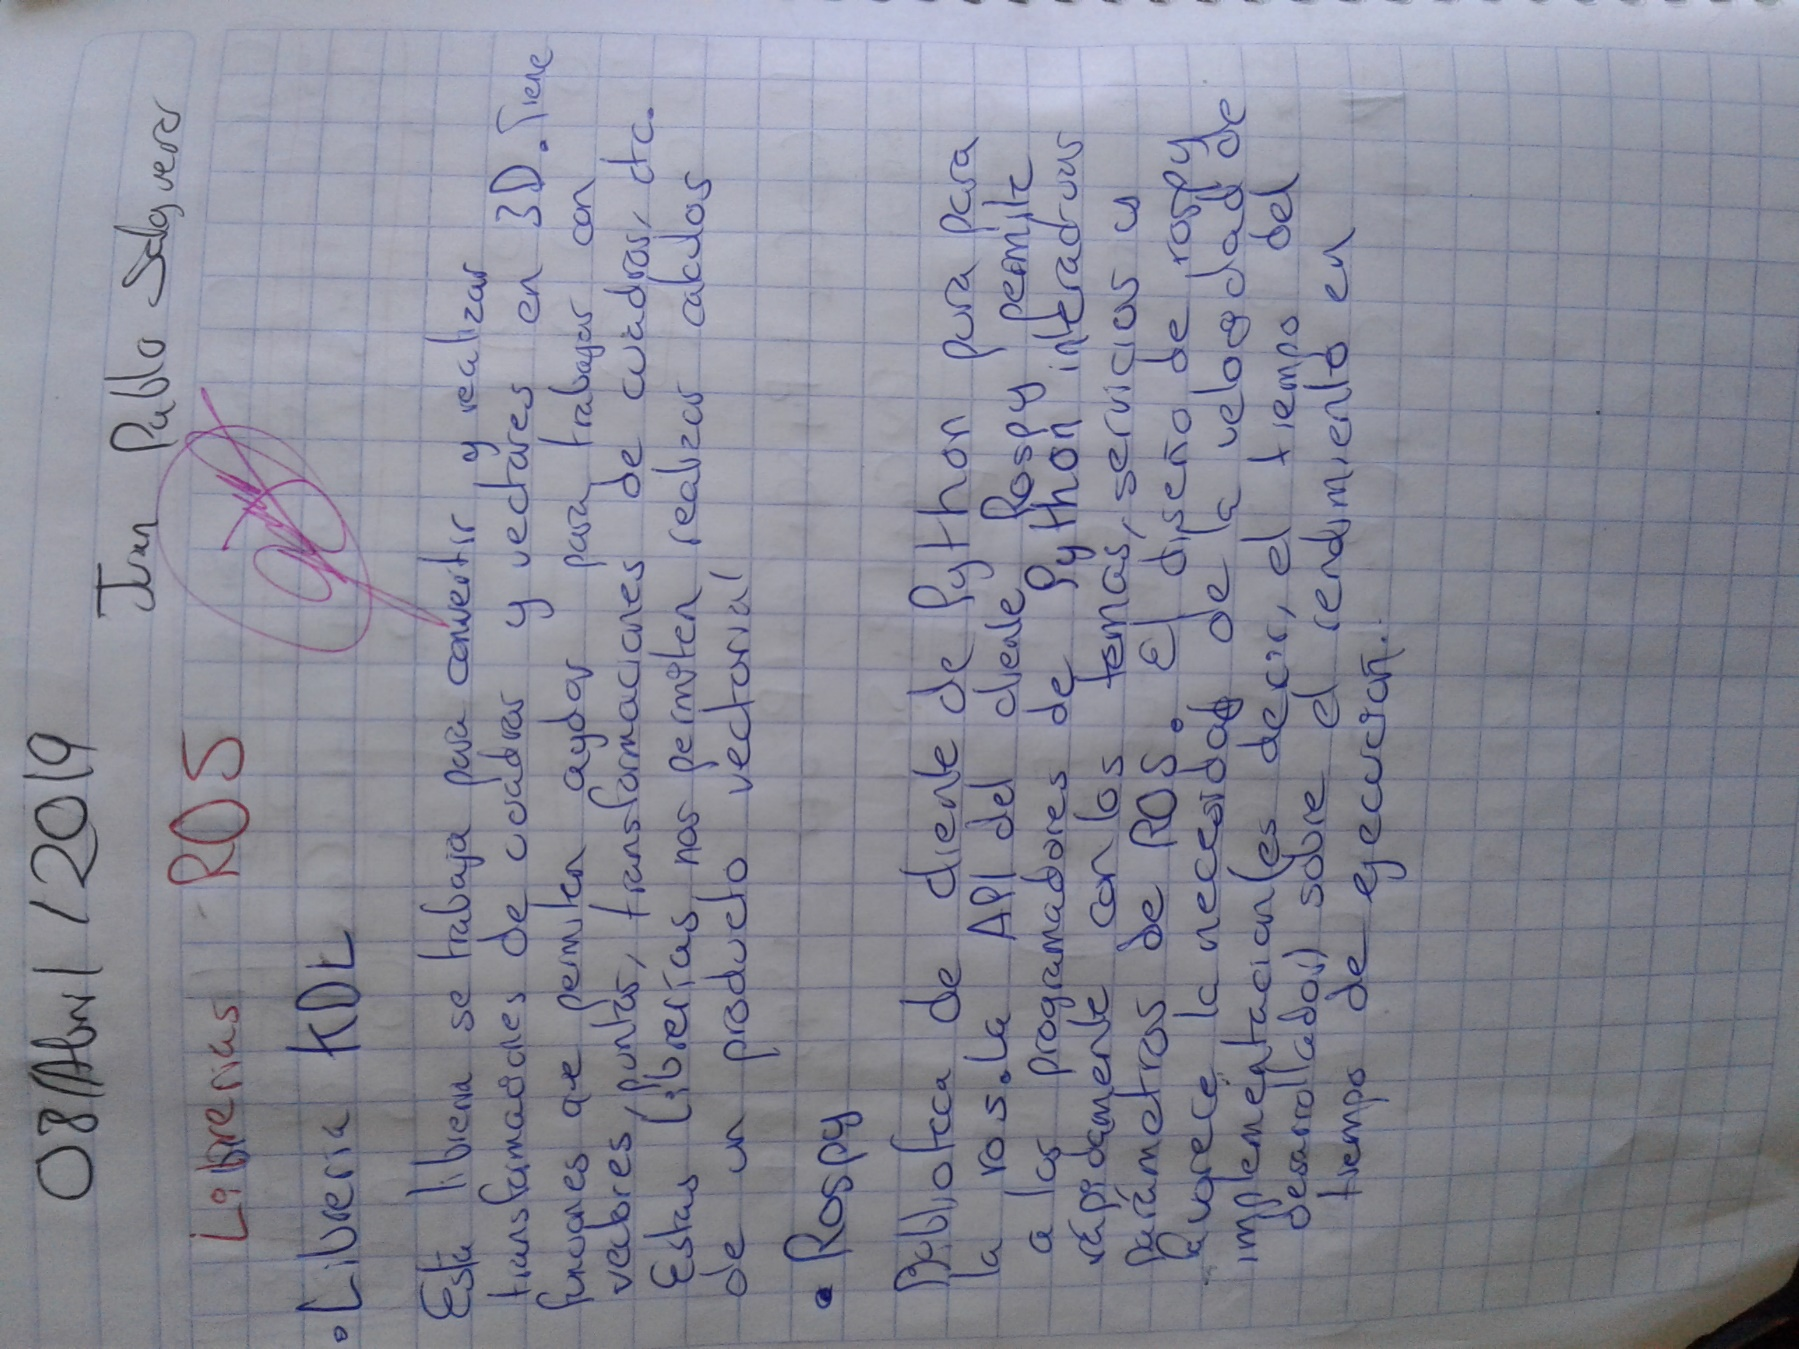 08/Abril/2019
Juan Pablo Salguero
Librerias ROS
• Librería KDL
Esta libreria se trabaja para convertir y realizar
transformaciones de cuadros y vectores en 3D. Tiene
funciones que permiten aydar para trabajar con
vectores, puntos, transformaciones de cuadros, etc.
Estas librerías nos permiten realizar calculos
de un producto vectorial
• Rospy
Biblioteca de cliente de Python pura para
la ros. La API del cliente Rospy permite
a los programadores de Python interactuar
rápidamente con los temas, servicios y
Parámetros de ROS. El diseño de rospy
favorece la necesidad de la velocidad de
implementacion (es decir, el tiempo del
desarrollador) sobre el rendimiento en
tiempo de ejecución.